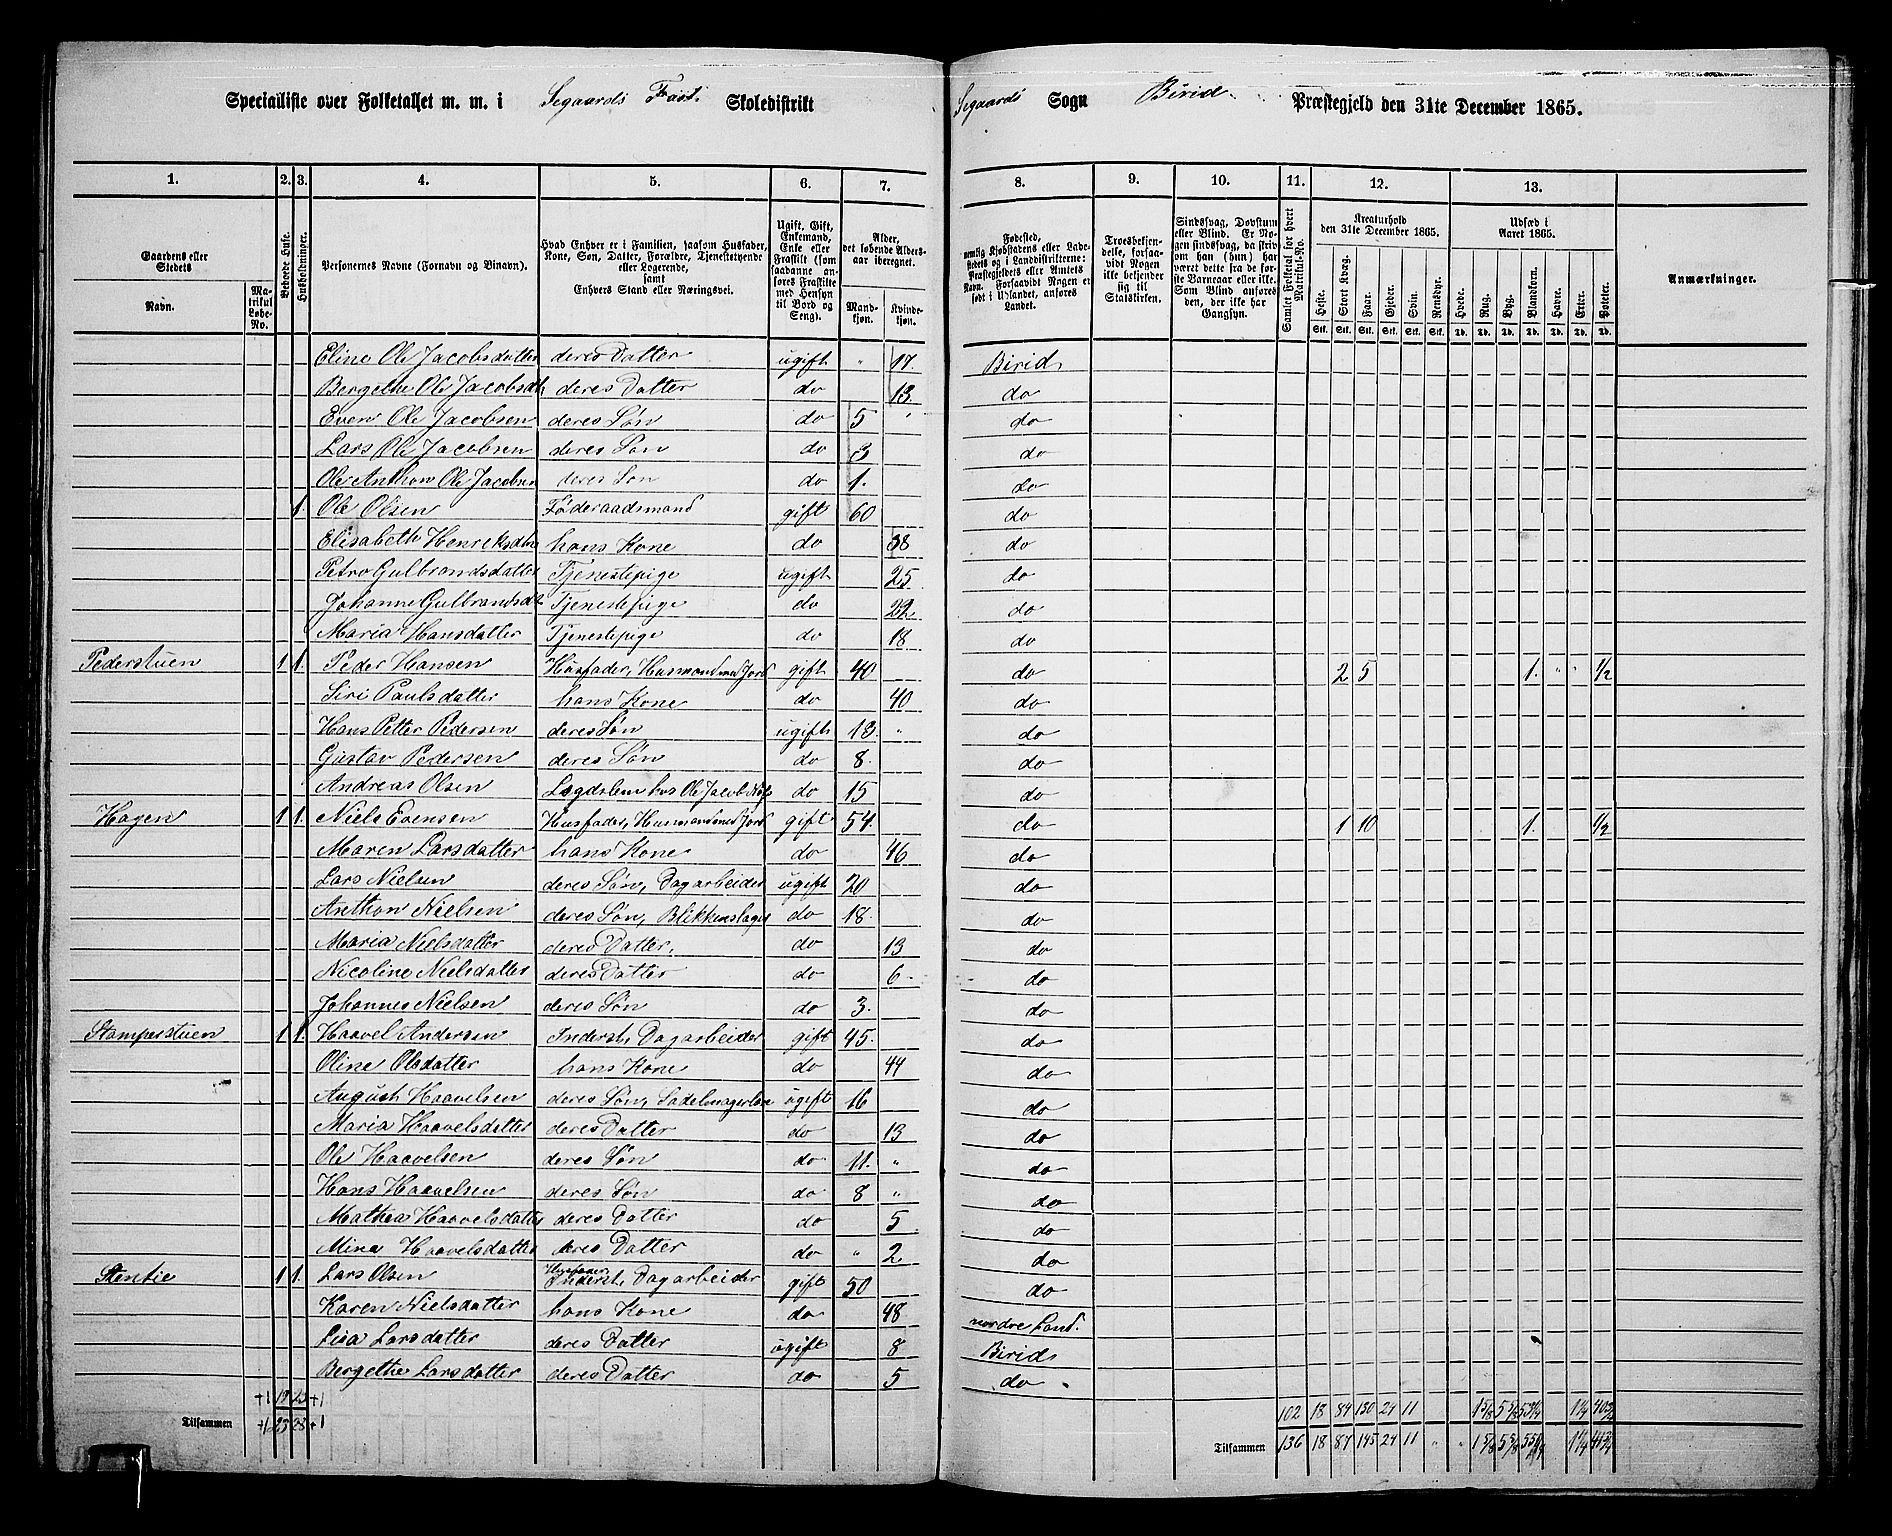 Specialliste over Folketallet m. m. i Segaards Fast. Skoledistrikt Segaards Sogn Birid Præstegjeld den 31te December 1865.
1. 2. 3. 4. 5. 6. 7. 8. 9. 10. 11. 12. 13.
Gaardens eller Stedets Navn. Matrikul Løbe-No. Beboede Huse. Husholdninger. Personernes Navne (Fornavn og Binavn). Hvad Enhver er i Familien, saasom Husfader, Kone, Søn, Datter, Forældre, Tjenestetyende eller Logerende, samt Enhvers Stand eller Næringsvei. Ugift, Gift, Enkemand, Enke eller Fraskilt (som saadanne anføres Fraskilte med Hensyn til Bord og Seng). Alder, det løbende Aldersaar iberegnet. Mandkjøn. Kvindekjøn. Fødested, nemlig Kjøbstadens eller Ladestedets og i Landdistrikterne: Præstegjeldets eller Amtets Navn. Forsaavidt Nogen er født i Udlandet, anføres Landet. Troesbekjendelse, forsaavidt Nogen ikke bekjender sig til Statskirken. Sindssvag, Døvstum eller Blind. Er Nogen sindssvag, da skriv om han (hun) har været dette fra de første Barneaar eller ikke. Som Blind anføres den, der ikke har Gangsyn. Samlet Folketal for hvert Matrikul-No. Kreaturhold den 31te December 1865. Heste. Stort Kvæg. Faar. Gjeder. Svin. Rensdyr. Udsæd i Aaret 1865. Hvede. Rug. Byg. Blandkorn. Havre. Erter. Poteter. Anmærkninger.
Eline Ole Jacobsdatter deres Datter ugift " 17. Birid
Bergethe Ole Jacobsdt. deres Datter do 13. do
Even Ole Jacobsen deres Søn do 5 " do
Lars Ole Jacobsen deres Søn do 3 do
Ole Anthon Ole Jacobsen deres Søn do 1. do
1. Ole Olsen Føderaadsmand gift 60 do
Elisabeth Henriksdtr hans Kone do 38 do
Petro Gulbrandsdatter Tjenestepige ugift 25 do
Johanne Gulbrandsdt. Tjenestepige do 22. do
Maria Hansdatter Tjenestepige do 18 do
Pederstuen 1 1. Peder Hansen Husfader, Husmand med Jord gift 40 do 2 5 1. " " 1/2
Siri Paulsdatter hans Kone do 40 do
Hans Petter Pedersen deres Søn ugift 18. " do
Gustav Pedersen deres Søn do 8. do
Andreas Olsen Lægdslem hos Ole Jacob do 15 do
Hagen 1 1. Niels Evensen Husfader, Husmand med Jord gift 54. do 1 10 1. 1/2
Maren Larsdatter hans Kone do 46 do
Lars Nielsen deres Søn, Dagarbeider ugift 20 do
Anthon Nielsen deres Søn, Blikkenslager do 18. do
Maria Nielsdatter deres Datter, do 13 do
Nicoline Nielsdatter deres Datter do 6. do
Johannes Nielsen deres Søn do 3. do
Stamperstuen 1 1. Haavel Andersen Inderst, Dagarbeider gift 45. do
Oline Olsdatter hans Kone do 44 do
August Haavelsen deres Søn, Sadelmagerlær ugift 16 do
Maria Haavelsdatter deres Datter do 13 do
Ole Haavelsen deres Søn do 11. " do
Hans Haavelsen deres Søn do 8 " do
Mathea Haavelsdatter deres Datter do 5 do
Mina Haavelsdatter deres Datter do " 2 do
Stenlie 1 1. Lars Olsen Husfader Inderst, Dagarbeider gift 50 do
Karen Nielsdatter hans Kone do 48 nordre Land.
Lisa Larsdatter deres Datter ugift 8 Birid
Bergethe Larsdatter deres Datter do 5 do
+1 19 23 +1 102 18 84 130 24 11 1 5/8 5 5/8 53 1/4 1 1/4 40 3/4
Tilsammen +1 23 28 +1 Tilsammen 136 18 87 145 24 11 " " 1 5/8 5 5/8 55 1/4 1 1/4 41 3/4